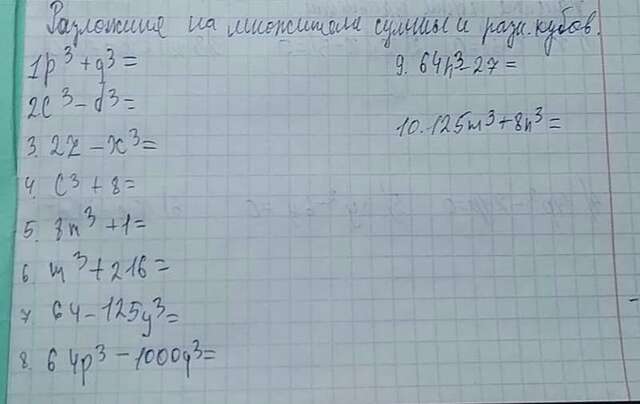 Разложение на множители суммы и разн. кубов.
1 p³ + q³ =
2 c³ - d³ =
3. 27 - x³ =
4. c³ + 8 =
5. 8m³ + 1 =
6 m³ + 216 =
7 64 - 125y³ =
8. 64p³ - 1000q³ =
9. 64n³ - 27 =
10. 125m³ + 8n³ =